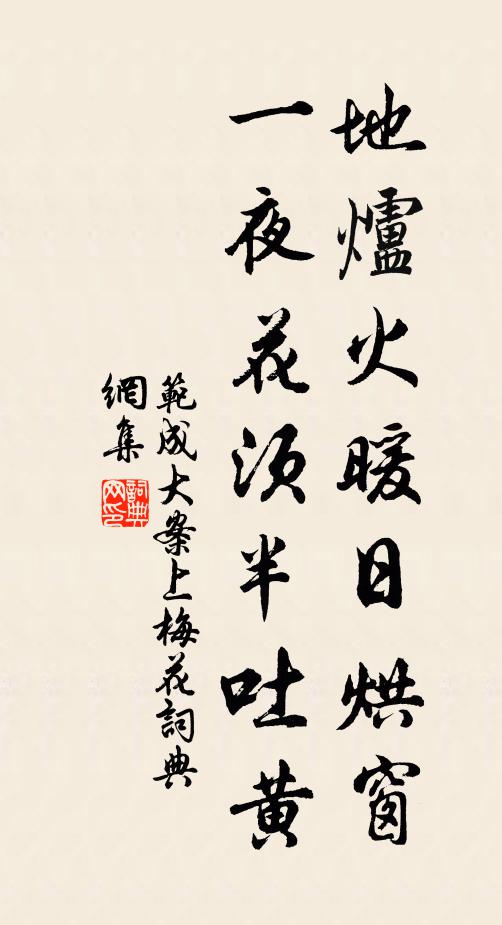 地爐火暖日烘窗
一夜花須半吐黄
範成大案上梅花詞典
網集
詞典
网印